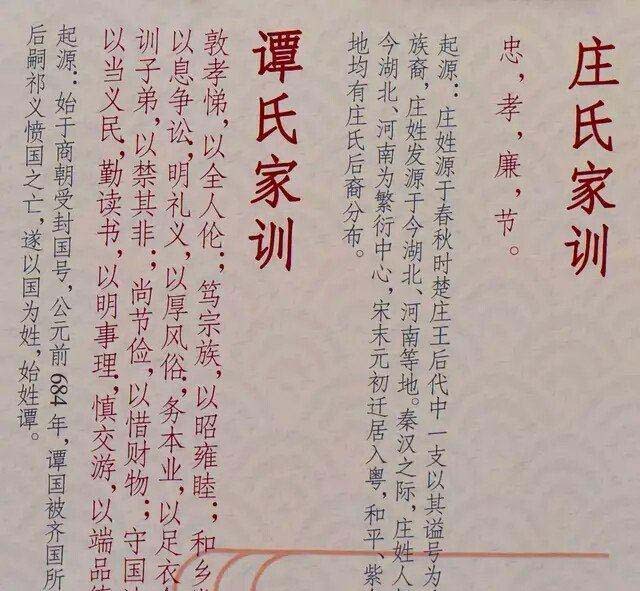 庄氏家训
忠，孝，廉，节。
起源：庄姓源于春秋时楚庄王后代中一支以其谥号为
族裔，庄姓发源于今湖北、河南等地。秦汉之际，庄姓人
今湖北、河南为繁衍中心，宋末元初迁居入粤，和平、紫
地均有庄氏后裔分布。
谭氏家训
敦孝悌，以全人伦；笃宗族，以昭雍睦；和乡
以息争讼，明礼义，以厚风俗；务本业，以足衣
训子弟，以禁其非；尚节俭，以惜财物；守国
以当义民，勤读书，以明事理，慎交游，以端品
起源：始于商朝受封国号，公元前684年，谭国被齐国所
后嗣祁义愤国之亡，遂以国为姓，始姓谭。